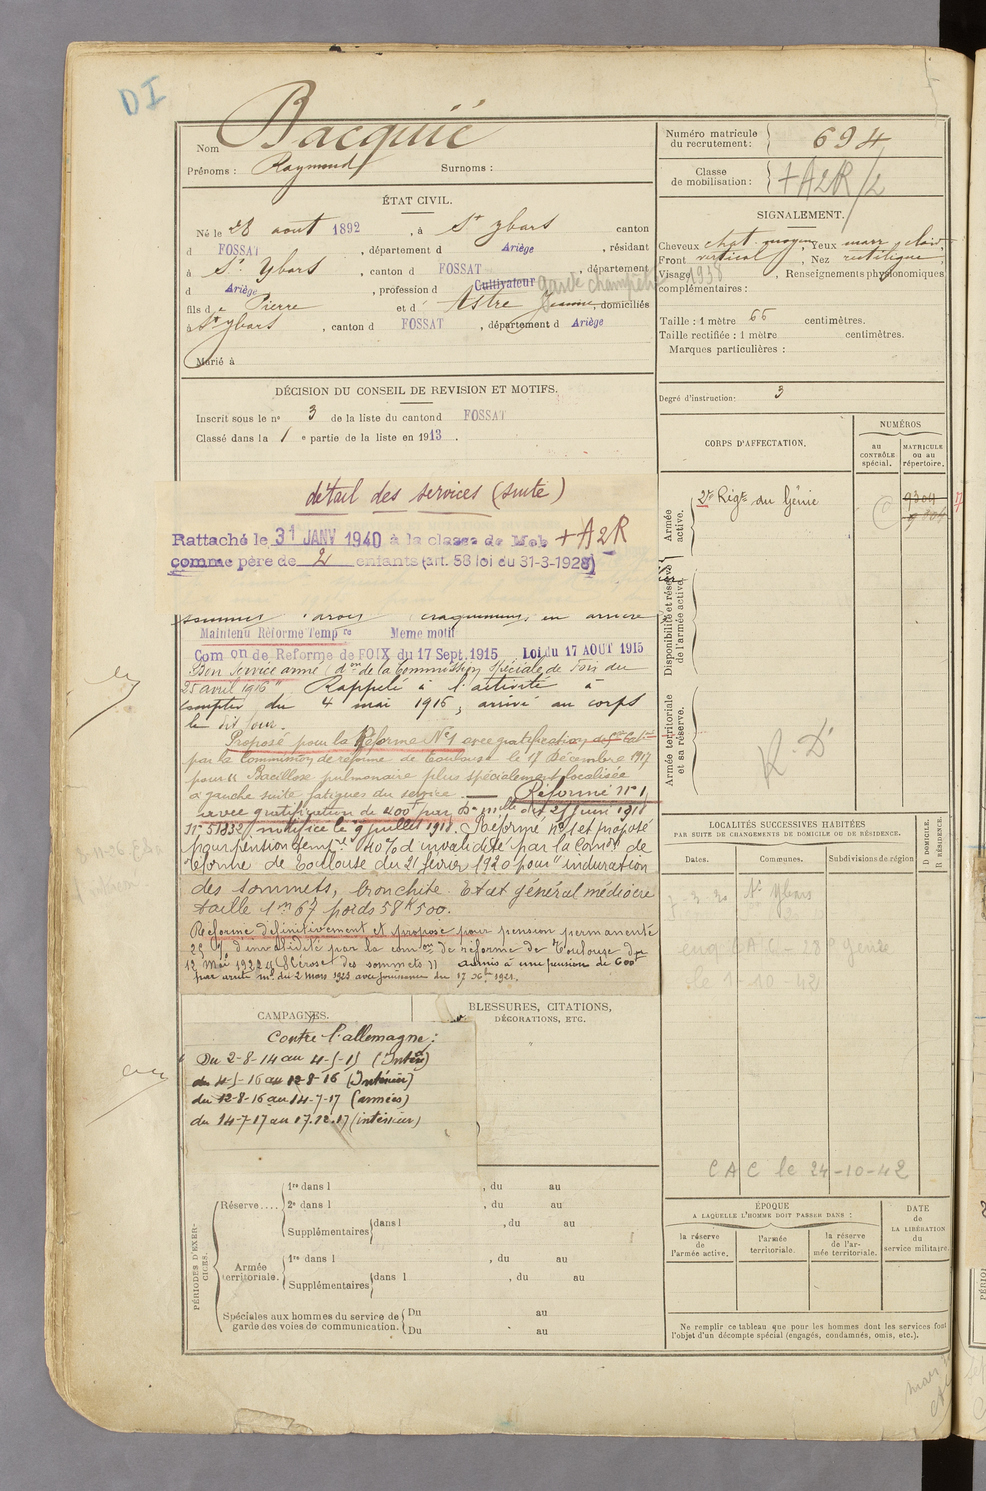 DI
Nom Bacquié
Prénoms : Raymond Surnoms :
Numéro matricule du recrutement : 694
Classe de mobilisation : +A2R/2
ÉTAT CIVIL.
Né le 28 aout 1892, à St Ybars canton
d FOSSAT, département d Ariège, résidant
à St Ybars, canton d FOSSAT, département
d Ariège, profession d Cultivateur garde champêtre
fils de Pierre et d Astre Jeanne domiciliés
à St Ybars, canton d FOSSAT, département d Ariège
Marié à
SIGNALEMENT.
Cheveux chat. moyen, Yeux marr. clair,
Front vertical, Nez rectiligne,
Visage 1938, Renseignements physionomiques
complémentaires :
Taille : 1 mètre 66 centimètres.
Taille rectifiée : 1 mètre centimètres.
Marques particulières :
Degré d'instruction : 3
DÉCISION DU CONSEIL DE REVISION ET MOTIFS.
Inscrit sous le n° 3 de la liste du canton d FOSSAT
Classé dans la 1 e partie de la liste en 1913.
CORPS D'AFFECTATION.
NUMÉROS
au CONTRÔLE spécial.
MATRICULE ou au répertoire.
Armée active.
2e Régt du Génie
9304
Disponibilité et réserve de l'armée active.
Armée territoriale et sa réserve.
R. D
détail des services (suite)
Rattaché le 31 JANV 1940 à la classe de Mob +A2R
comme père de 2 enfants (art. 58 loi du 31-3-1928)
sommets craquements en arrière
Maintenu Réforme Temp re Meme motif
Com on de Reforme de FOIX du 17 Sept. 1915 Loi du 17 AOUT 1915
Bon service armé (d on de la Commission Spéciale de Foix du
25 avril 1916" Rappelé à l'activité à
compter du 4 mai 1916, arrivé au corps
le dit jour.
Proposé pour la Réforme N°1 avec gratification
par la Commission de réforme de Toulouse le 17 Décembre 1917
pour "Bacillose pulmonaire plus spécialement localisée
à gauche suite fatigues du service. — Réformé n° 1,
avec gratification de 400f par Don mlle du 2 juin 1918
N° 51832, notifiée le 9 juillet 1918. Réformé n°1 et proposé
pour pension temre 40% d'invalidité par la Comon de
réforme de Toulouse du 21 février 1920 pour "induration
des sommets, bronchite. Etat général médiocre
taille 1m67 poids 58K500.
Réformé définitivement et proposé pour pension permanente
25% d'invalidité par la comon de réforme de Toulouse du
12 Mai 1922 "Sclérose des sommets" admis à une pension de 600f
par arrêté ml du 2 mars 1923 avec jouissance du 17 Xbre 1921.
LOCALITÉS SUCCESSIVES HABITÉES
PAR SUITE DE CHANGEMENTS DE DOMICILE OU DE RÉSIDENCE.
Dates. Communes. Subdivisions de région D DOMICILE. R RÉSIDENCE.
7-3-30 St Ybars
CAC - 28e Génie
le 1-10-42
CAC le 24-10-42
CAMPAGNES.
Contre l'allemagne :
Du 2-8-14 au 4-5-15 (Intér)
du 4-5-16 au 12-8-16 (Intérieur)
du 12-8-16 au 14-7-17 (armées)
du 14-7-17 au 17.12.17 (intérieur)
BLESSURES, CITATIONS,
DÉCORATIONS, ETC.
PÉRIODES D'EXERCICES.
Réserve....
1re dans l , du au
2e dans l , du au
Supplémentaires dans l , du au
Armée territoriale.
1re dans l , du au
Supplémentaires dans l , du au
Spéciales aux hommes du service de garde des voies de communication.
Du au
Du au
ÉPOQUE
A LAQUELLE L'HOMME DOIT PASSER DANS :
la réserve de l'armée active.
l'armée territoriale.
la réserve de l'armée territoriale.
DATE de LA LIBÉRATION du service militaire.
Ne remplir ce tableau que pour les hommes dont les services font
l'objet d'un décompte spécial (engagés, condamnés, omis, etc.).